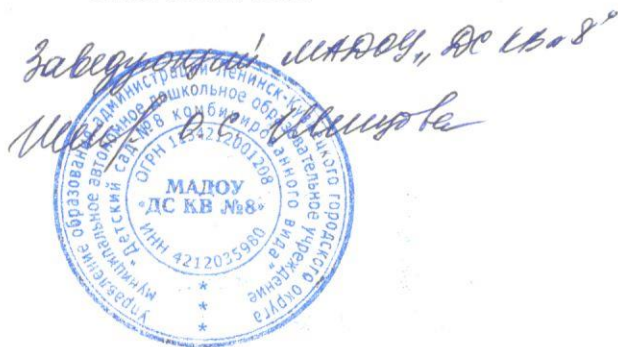 Заведующий МАДОУ „ДС КВ №8"
О.С.
Управление образования администрации Ленинск-Кузнецкого городского округа
Муниципальное автономное дошкольное образовательное учреждение
"Детский сад №8 комбинированного вида"
ОГРН 1134212001208
МАДОУ
«ДС КВ №8»
ИНН 4212035980
* * *